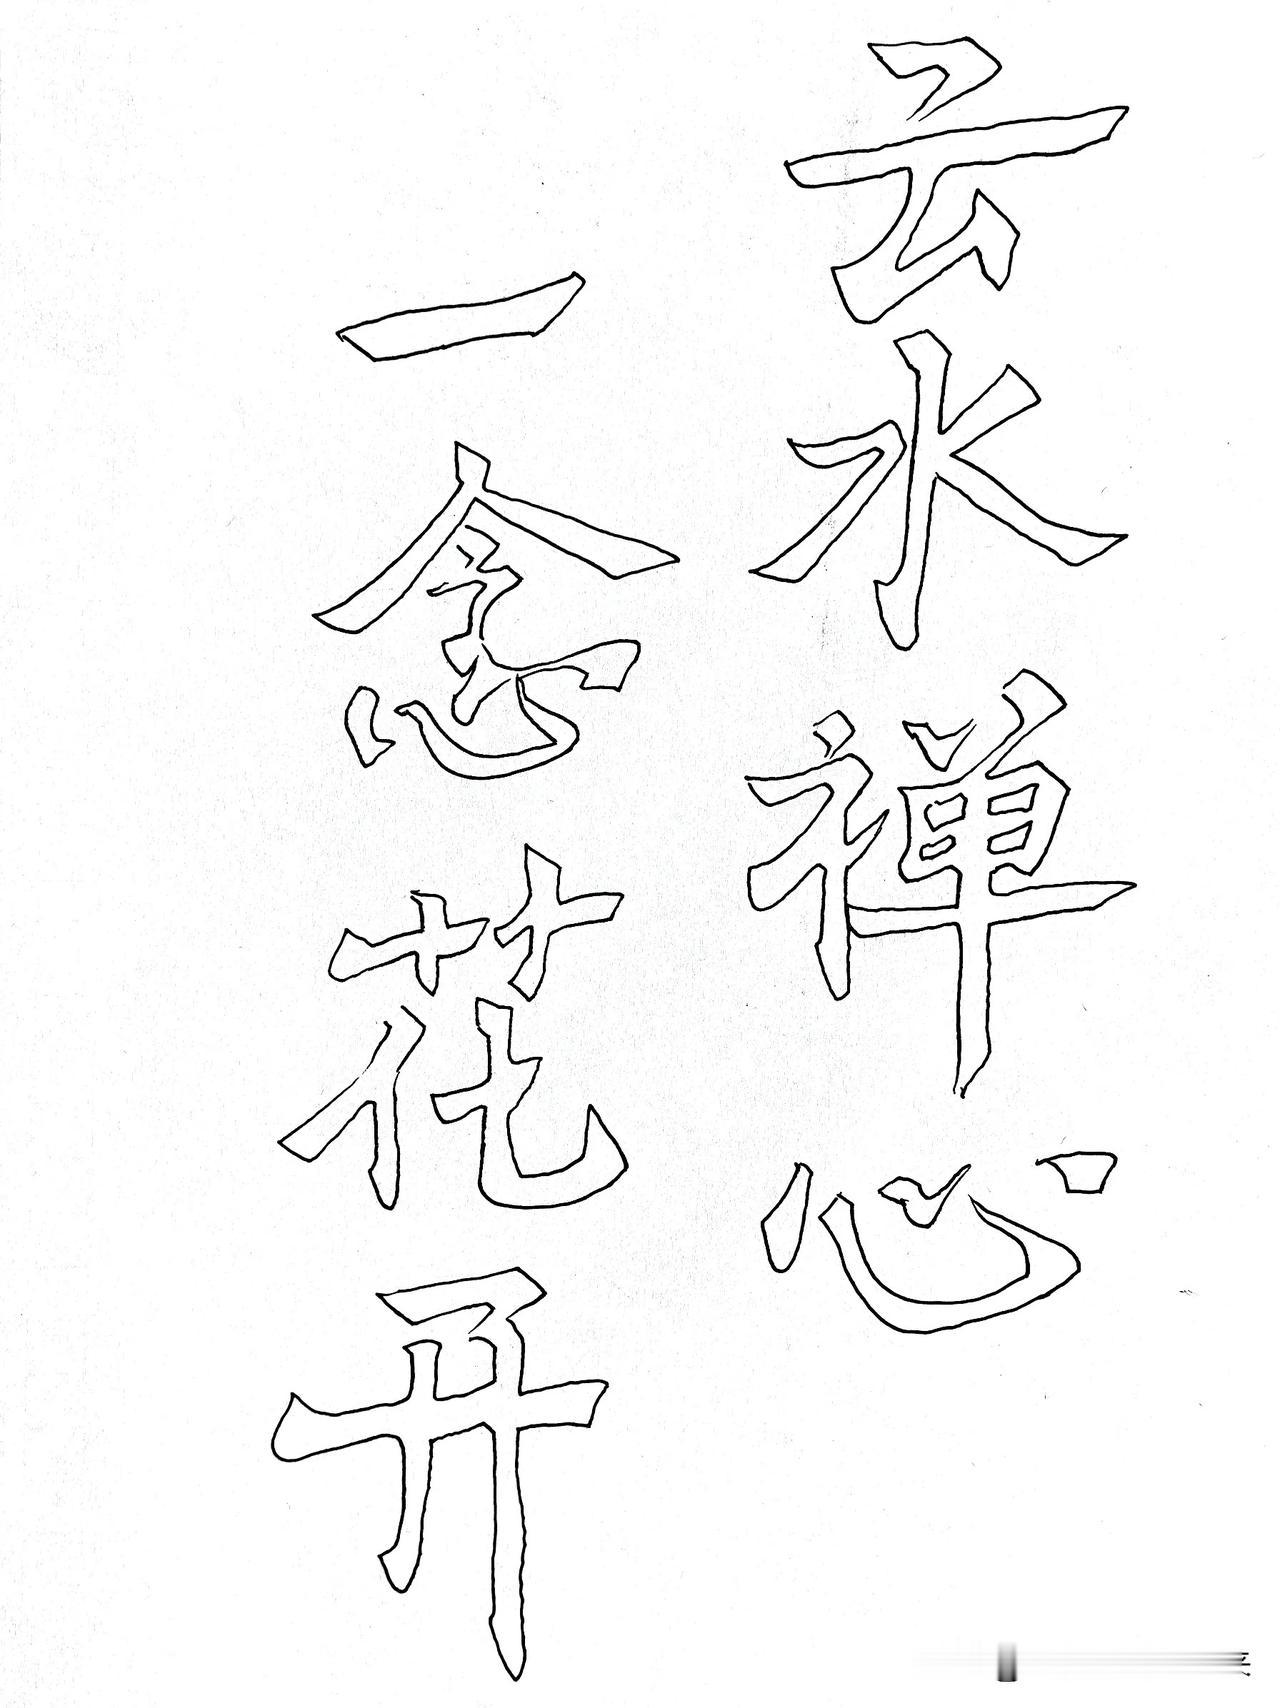 云水禅心
一念花开